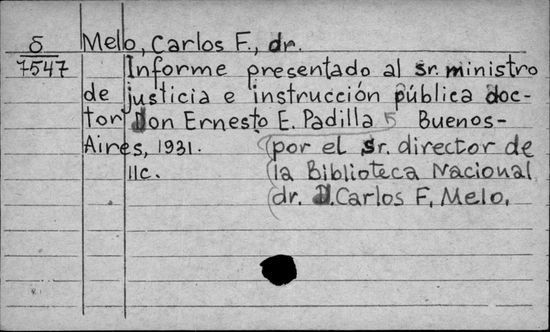 δ Melo, Carlos F., dr.
7547 Informe presentado al sr. ministro
de justicia e instrucción pública doc-
tor Don Ernesto E. Padilla 5 Buenos-
Aires, 1931. (por el sr. director de
11c. (la Biblioteca Nacional
(dr. D. Carlos F. Melo.